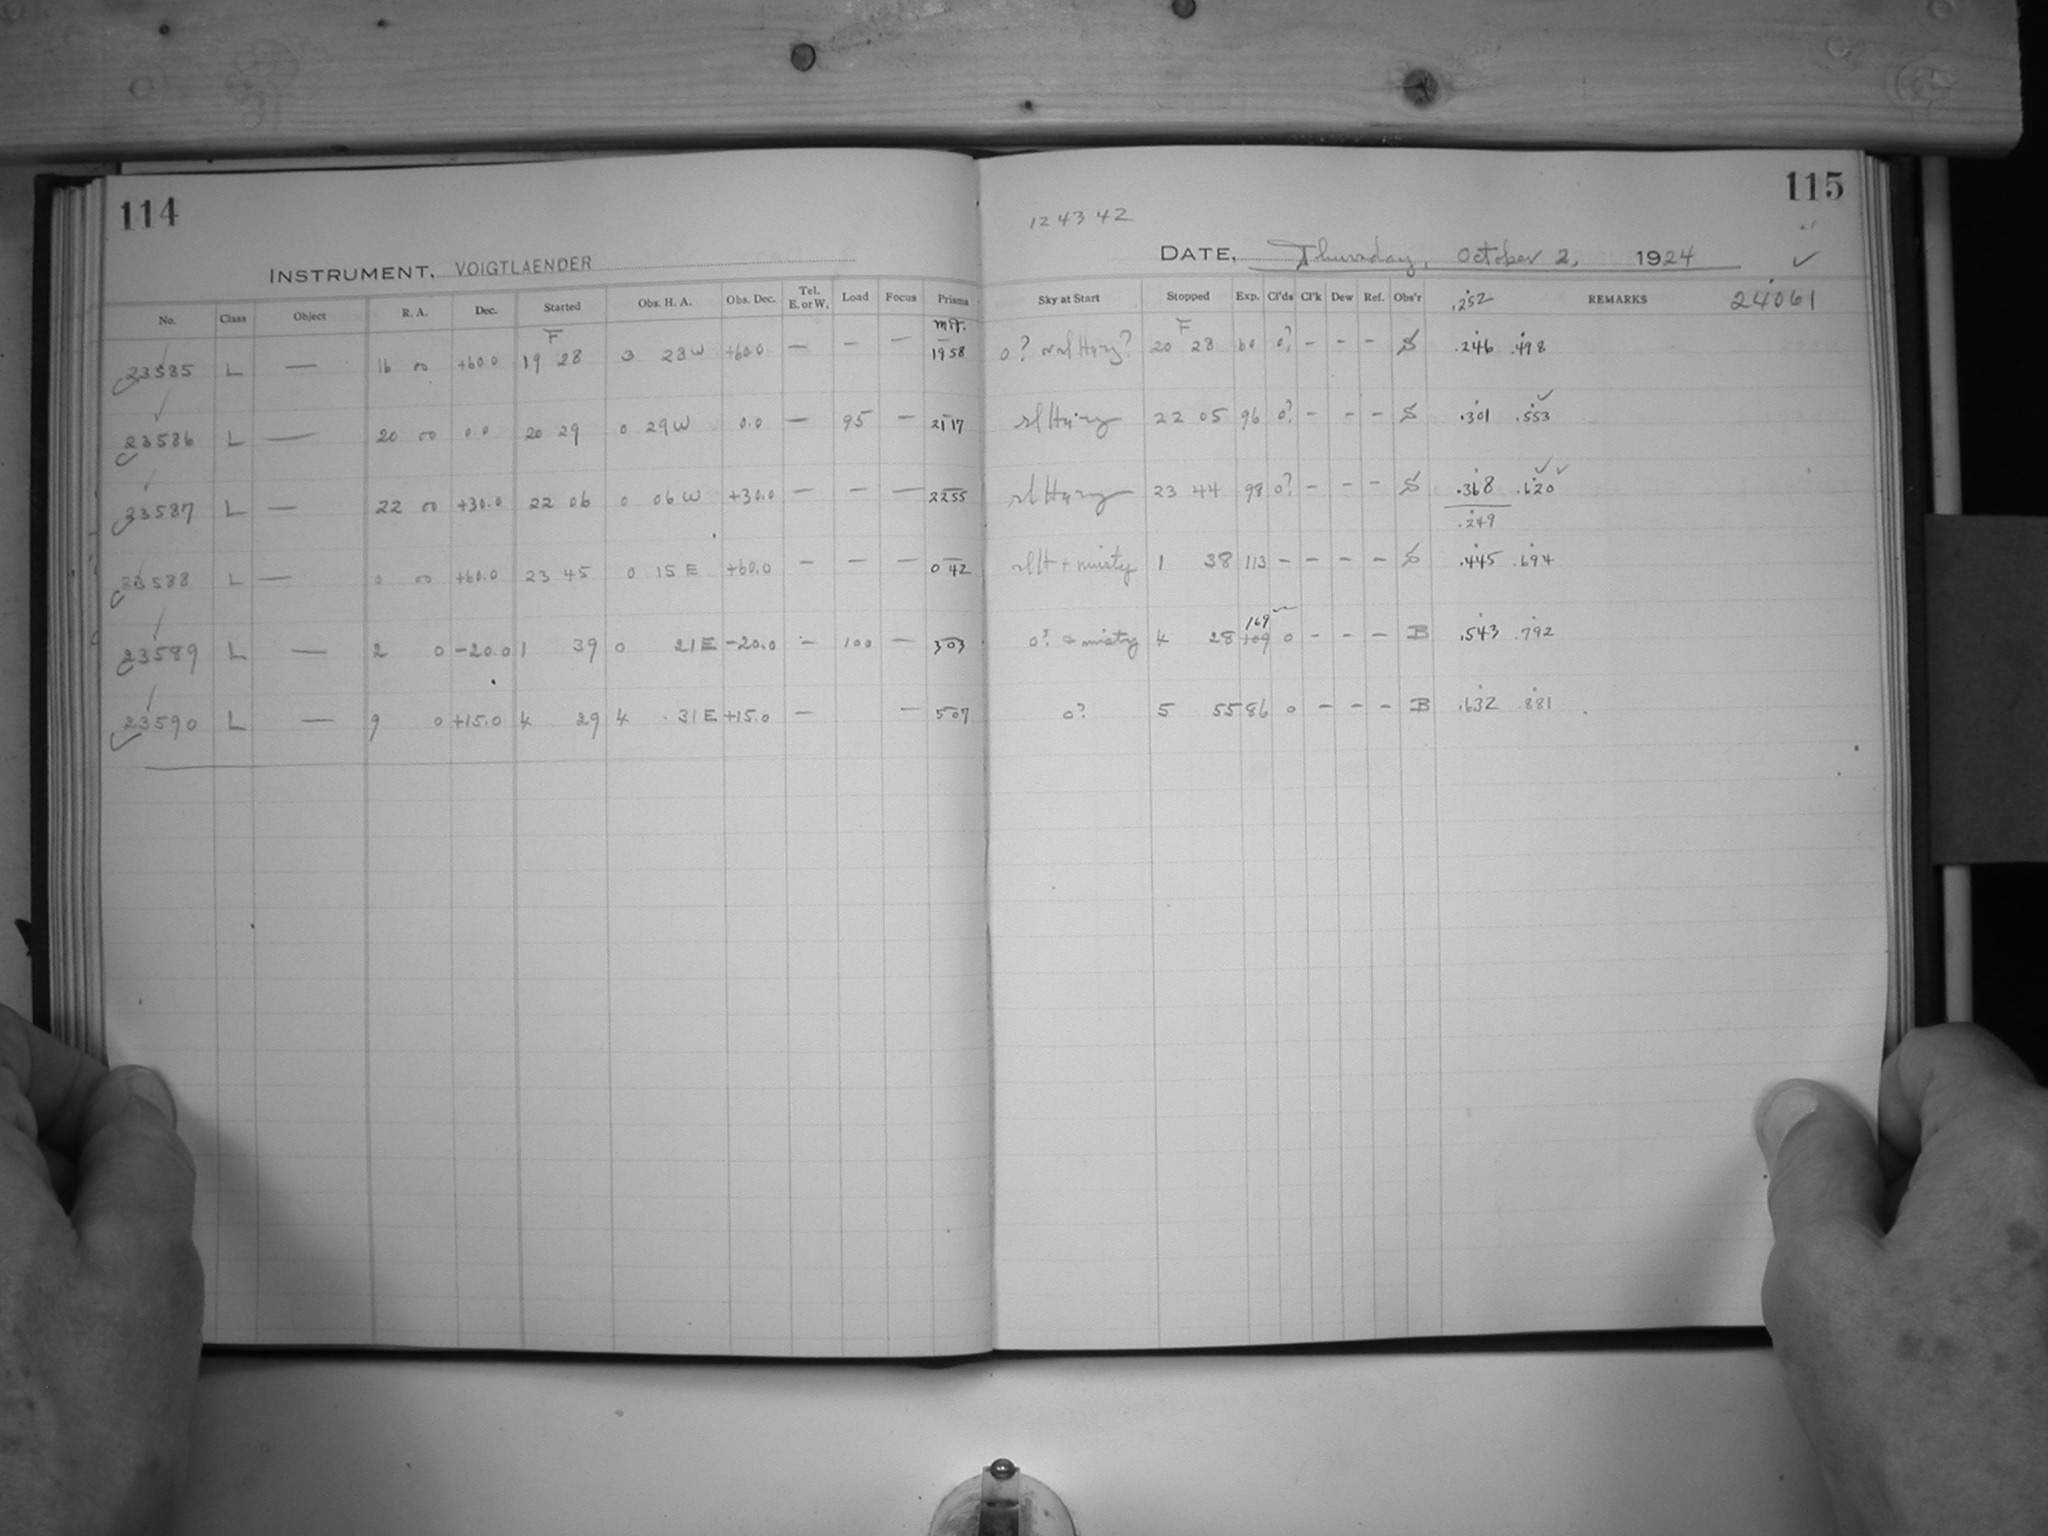 114
INSTRUMENT, VOIGTLAENDER
No. Class Object R. A. Dec. Started Obs. H. A. Obs. Dec. Tel. E. or W. Load Focus Prisms
F M.T.
23585 L — 16 00 +60.0 19 28 3 28 W +60.0 — — — 19 58
23586 L — 20 00 0.0 20 29 0 29 W 0.0 — 95 — 21 17
23587 L — 22 00 +30.0 22 06 0 06 W +30.0 — — — 22 55
23588 L — 0 00 +60.0 23 45 0 15 E +60.0 — — — 0 42
23589 L — 2 0 -20.0 1 39 0 21 E -20.0 — 100 — 3 03
23590 L — 9 0 +15.0 4 29 4 31 E +15.0 — — 5 07
115
12 43 42
DATE, Thursday, October 2, 1924 ✓
Sky at Start Stopped Exp. Cl'ds Cl'k Dew Ref. Obs'r .252 REMARKS 24061
F
0? 20 28 60 0? - - - S .246 .498
sl Hazy 22 05 96 0? - - - S .301 .553
sl Hazy 23 44 98 0? - - - S .368 .620
.249
sl H + misty 1 38 113 - - - - S .445 .694
169
0? & misty 4 28 109 0 - - - B .543 .792
0? 5 55 86 0 - - - B .632 .881